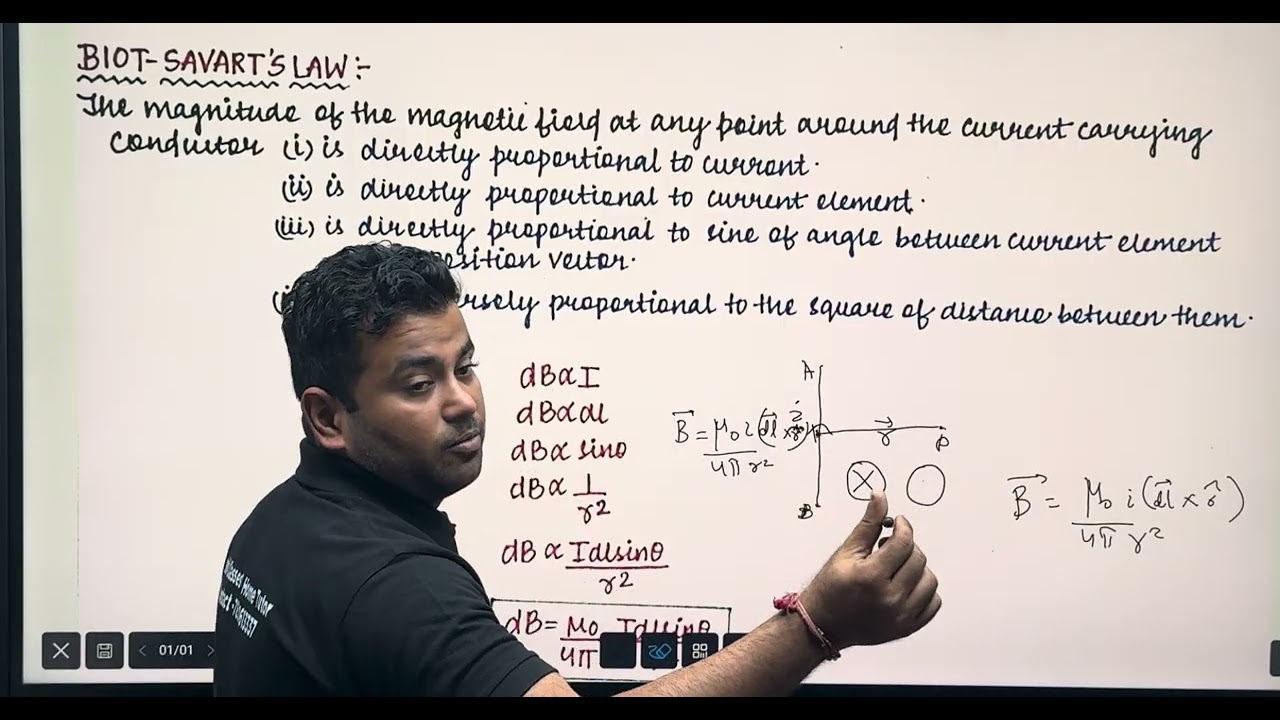 BIOT-SAVART'S LAW :-
The magnitude of the magnetic field at any point around the current carrying
conductor (i) is directly proportional to current.
(ii) is directly proportional to current element.
(iii) is directly proportional to sine of angle between current element
vector.
proportional to the square of distance between them.
dB∝I
dB∝dl
dB∝ sinθ
dB∝ 1/r²
dB ∝ Idlsinθ/r²
dB = μ₀/4π Idlsinθ
A
B
r⃗
P
X
B⃗ = μ₀ i (d⃗l × r̂)/4π r²
Home Tutor
01/01